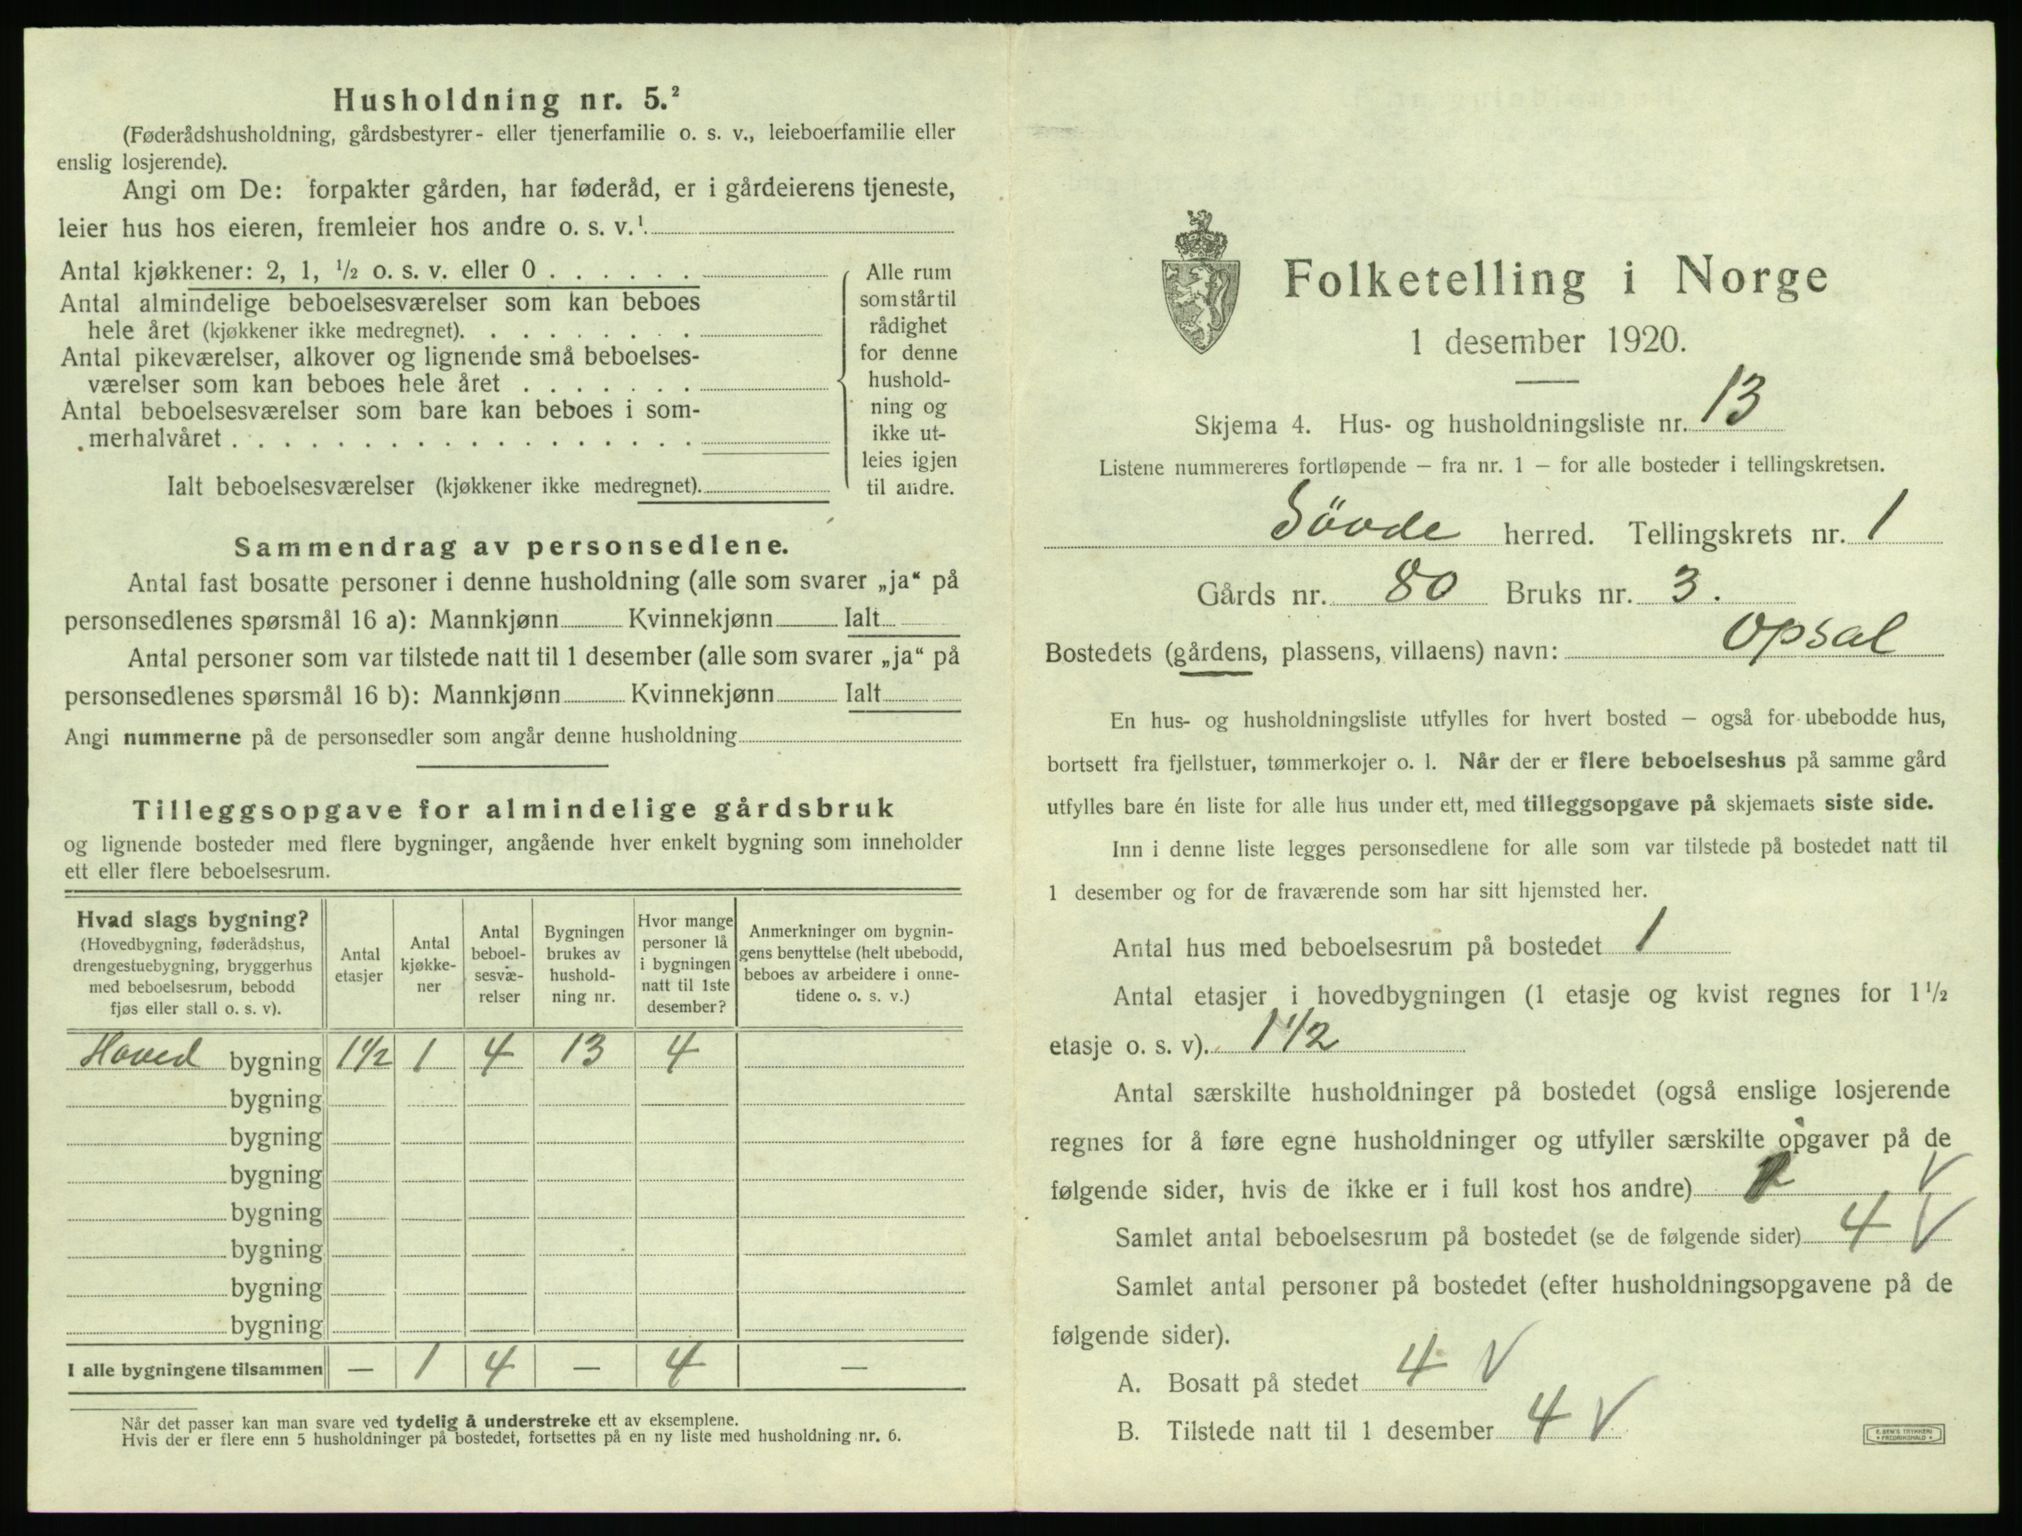 Husholdning nr. 5.²
(Føderådshusholdning, gårdsbestyrer- eller tjenerfamilie o. s. v., leieboerfamilie eller
enslig losjerende).
Angi om De: forpakter gården, har føderåd, er i gårdeierens tjeneste,
leier hus hos eieren, fremleier hos andre o. s. v.¹
Antal kjøkkener: 2, 1, ½ o. s. v. eller 0 . . . . . .
Antal almindelige beboelsesværelser som kan beboes
hele året (kjøkkener ikke medregnet). . . . . . . .
Antal pikeværelser, alkover og lignende små beboelses-
værelser som kan beboes hele året . . . . . . .
Antal beboelsesværelser som bare kan beboes i som-
merhalvåret . . . . . . . . . . . . . . . . . .
Ialt beboelsesværelser (kjøkkener ikke medregnet).
Alle rum
som står til
rådighet
for denne
hushold-
ning og
ikke ut-
leies igjen
til andre.
Sammendrag av personsedlene.
Antal fast bosatte personer i denne husholdning (alle som svarer „ja“ på
personsedlenes spørsmål 16 a): Mannkjønn Kvinnekjønn Ialt
Antal personer som var tilstede natt til 1 desember (alle som svarer „ja“ på
personsedlenes spørsmål 16 b): Mannkjønn Kvinnekjønn Ialt
Angi nummerne på de personsedler som angår denne husholdning
Tilleggsopgave for almindelige gårdsbruk
og lignende bosteder med flere bygninger, angående hver enkelt bygning som inneholder
ett eller flere beboelsesrum.
Hvad slags bygning?
(Hovedbygning, føderådshus,
drengestuebygning, bryggerhus
med beboelsesrum, bebodd
fjøs eller stall o. s. v).
Antal
etasjer
Antal
kjøkke-
ner
Antal
beboel-
sesvæ-
relser
Bygningen
brukes av
hushold-
ning nr.
Hvor mange
personer lå
i bygningen
natt til 1ste
desember?
Anmerkninger om bygnin-
gens benyttelse (helt ubebodd,
beboes av arbeidere i onne-
tidene o. s. v.)
Hoved bygning 1½ 1 4 13 4
bygning
bygning
bygning
bygning
bygning
bygning
bygning
I alle bygningene tilsammen — 1 4 — 4 —
Når det passer kan man svare ved tydelig å understreke ett av eksemplene.
Hvis der er flere enn 5 husholdninger på bostedet, fortsettes på en ny liste med husholdning nr. 6.
Folketelling i Norge
1 desember 1920.
Skjema 4. Hus- og husholdningsliste nr. 13
Listene nummereres fortløpende – fra nr. 1 – for alle bosteder i tellingskretsen.
Søvde herred. Tellingskrets nr. 1
Gårds nr. 80 Bruks nr. 3.
Bostedets (gårdens, plassens, villaens) navn: Opsal
En hus- og husholdningsliste utfylles for hvert bosted – også for ubebodde hus,
bortsett fra fjellstuer, tømmerkojer o. l. Når der er flere beboelseshus på samme gård
utfylles bare én liste for alle hus under ett, med tilleggsopgave på skjemaets siste side.
Inn i denne liste legges personsedlene for alle som var tilstede på bostedet natt til
1 desember og for de fraværende som har sitt hjemsted her.
Antal hus med beboelsesrum på bostedet 1
Antal etasjer i hovedbygningen (1 etasje og kvist regnes for 1½
etasje o. s. v). 1½
Antal særskilte husholdninger på bostedet (også enslige losjerende
regnes for å føre egne husholdninger og utfyller særskilte opgaver på de
følgende sider, hvis de ikke er i full kost hos andre) V
Samlet antal beboelsesrum på bostedet (se de følgende sider) 4 V
Samlet antal personer på bostedet (efter husholdningsopgavene på de
følgende sider).
A. Bosatt på stedet 4 V
B. Tilstede natt til 1 desember 4 V
E. SEM'S TRYKKERI
FREDRIKSHALD